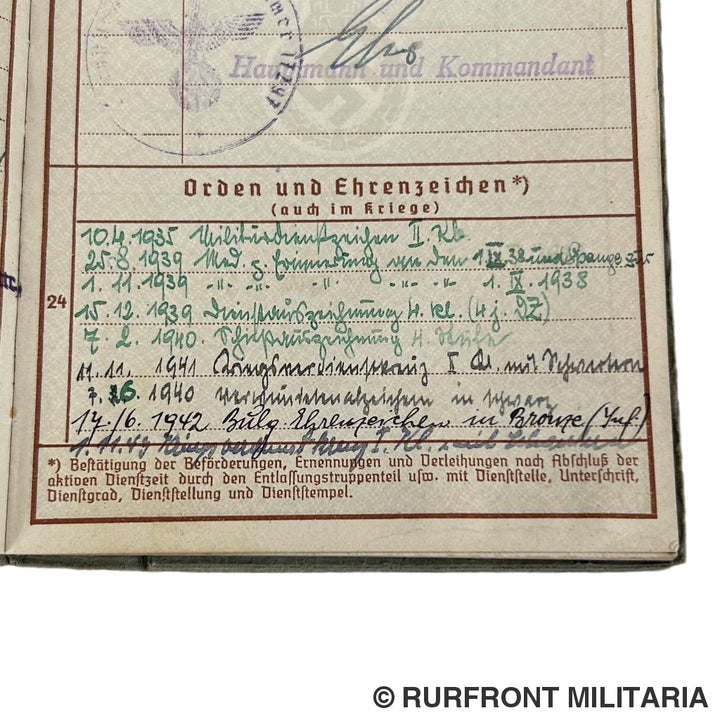 Hauptmann und Kommandant
Orden und Ehrenzeichen*)
(auch im Kriege)
24
10.4.1935 Militärdienstzeichen II. Kl.
25.8 1939 Med. z. Erinnerung an den 1 IX 38 und Spange zur
1.11.1939 -"- -"- -"- " -"- 1. IX. 1938
15.12.1939 Dienstauszeichnung 4. Kl. (4 j. DZ)
7. 2. 1940. 4. Stufe
11.11. 1941 Kriegsverdienstkreuz II Kl. mit Schwertern
7. 6. 1940 Verwundetenabzeichen in schwarz
17./6. 1942 Bulg. Ehrenzeichen in Bronze (Inf.)
1. 11.43 Kriegsverdienstkreuz I. Kl. mit
*) Bestätigung der Beförderungen, Ernennungen und Verleihungen nach Abschluß der
aktiven Dienstzeit durch den Entlassungstruppenteil usw. mit Dienststelle, Unterschrift,
Dienstgrad, Dienststellung und Dienststempel.
© RURFRONT MILITARIA